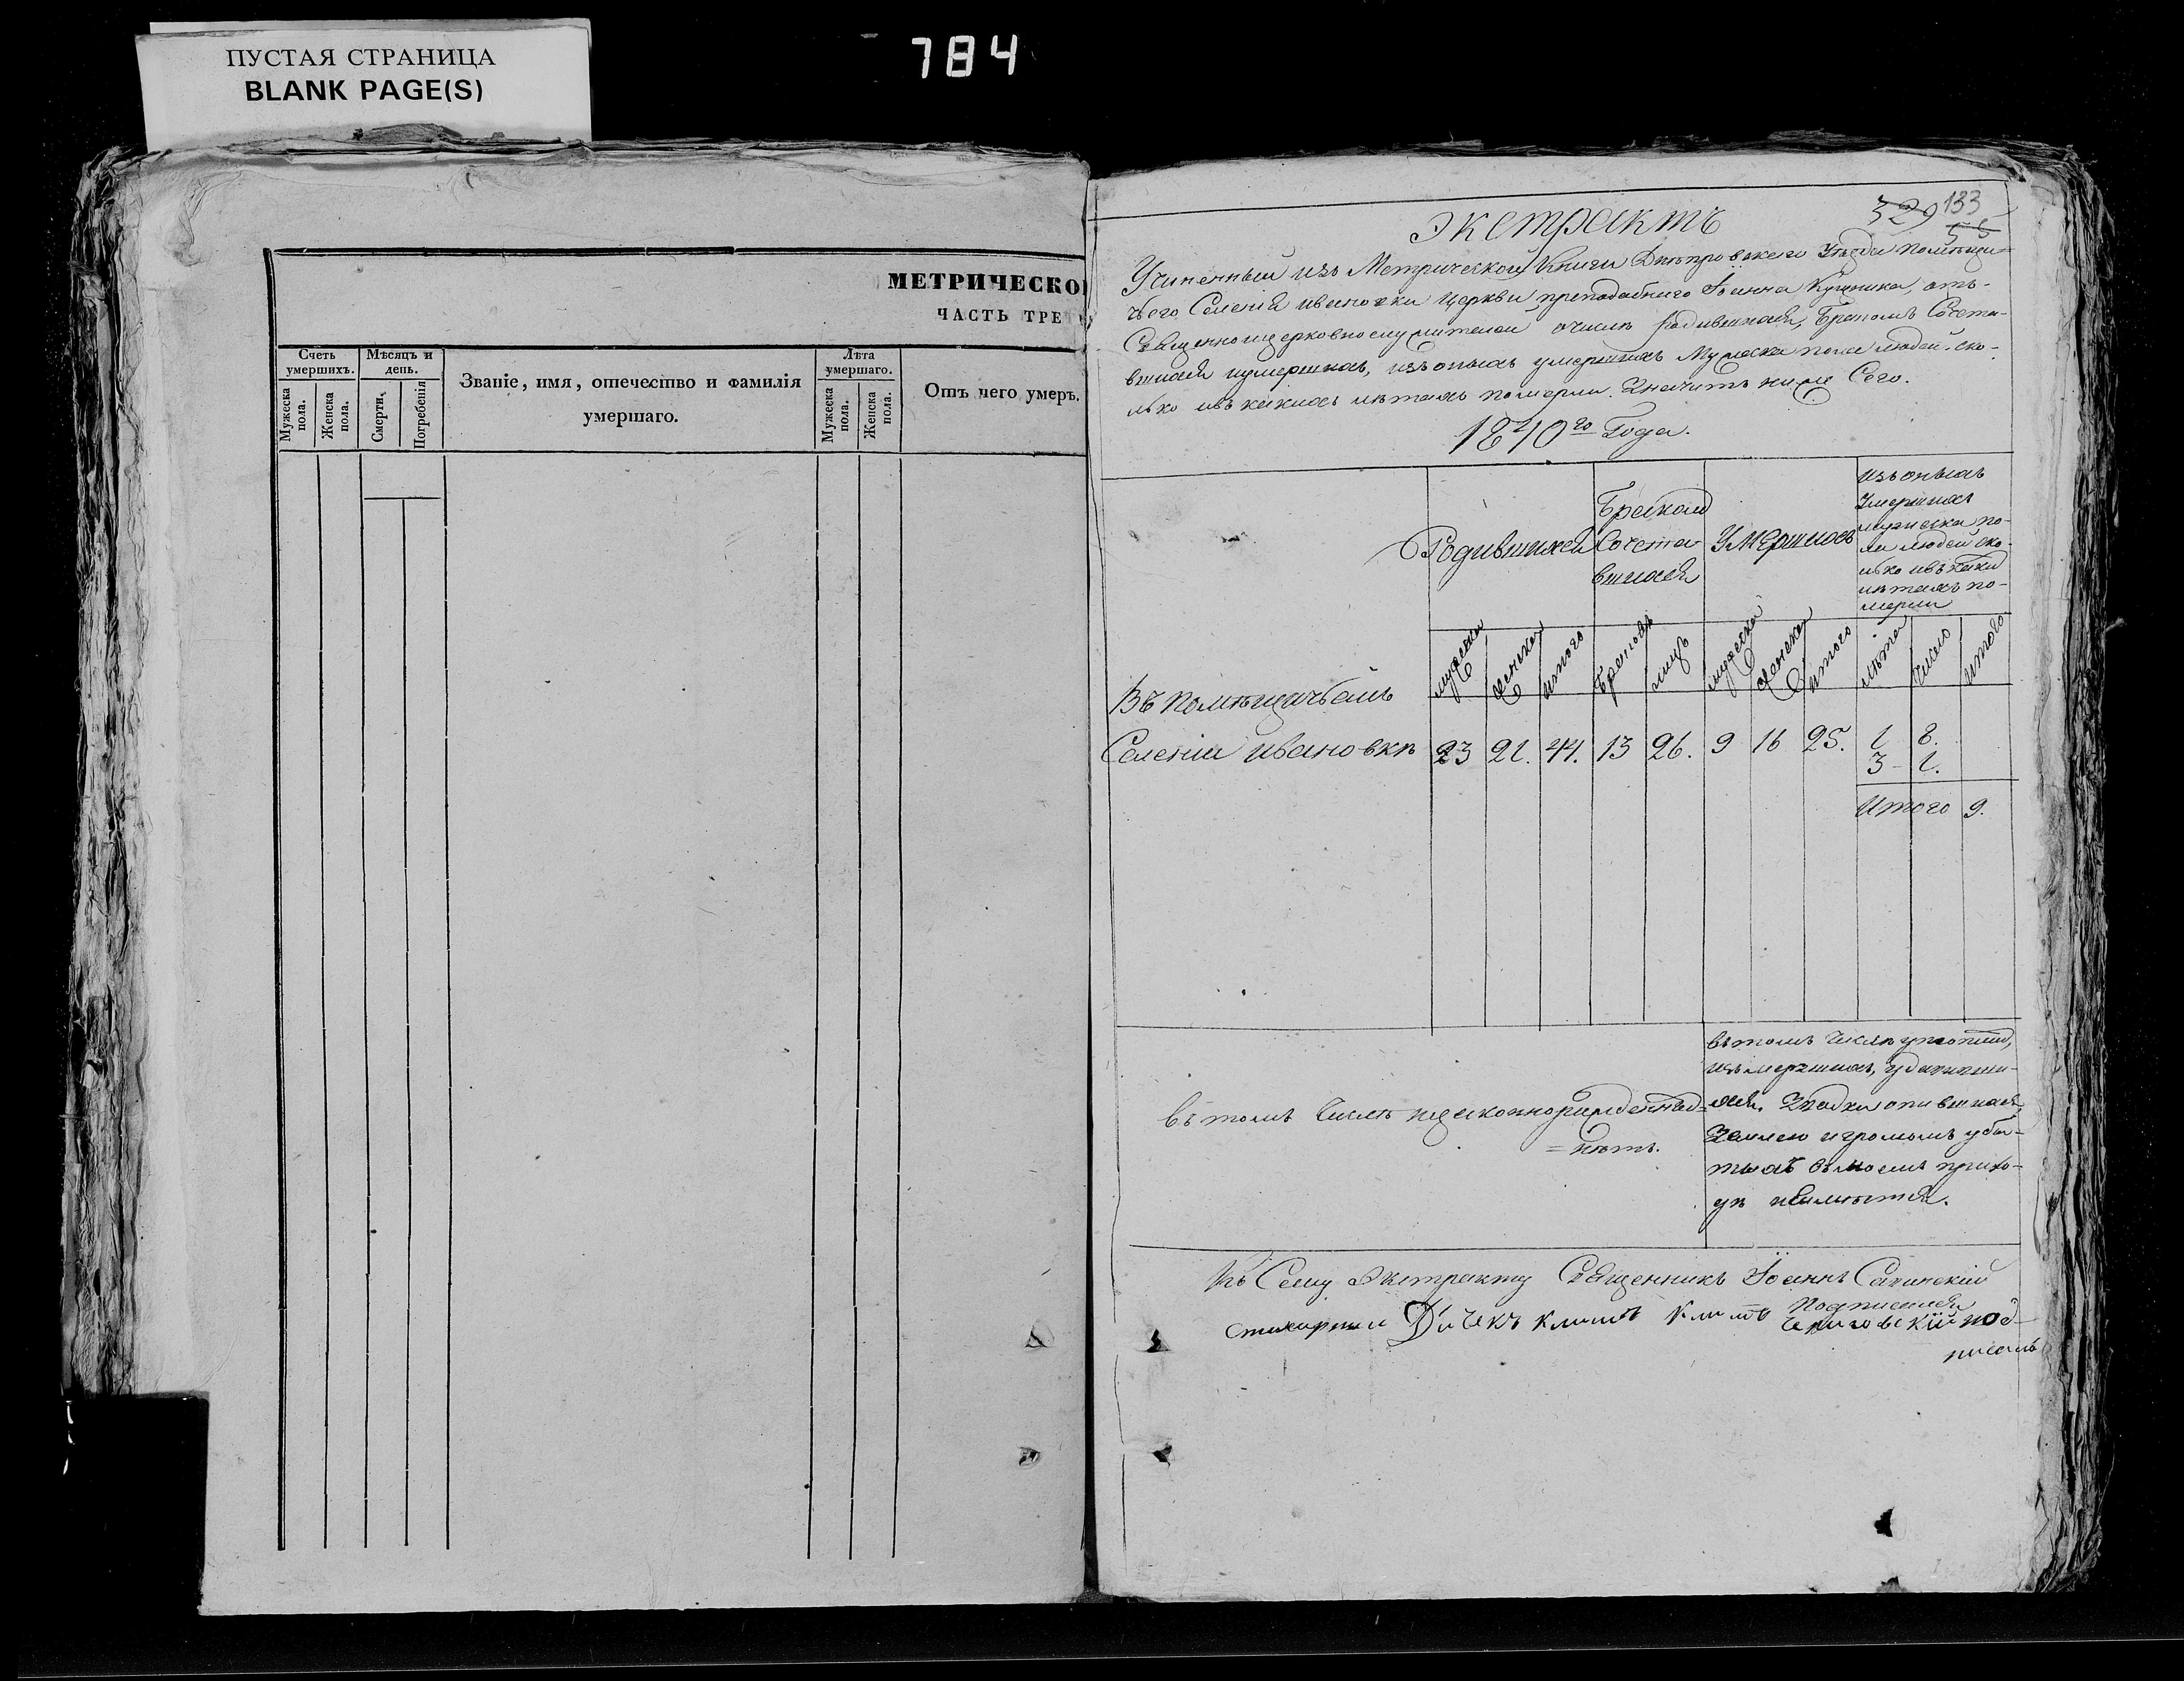 ПУСТАЯ СТРАНИЦА
BLANK PAGE(S)
784
МЕТРИЧЕСКО
ЧАСТЬ ТРЕ
Счетъ умершихъ.
Мѣсяцъ и день.
Званіе, имя, отечество и фамилія умершаго.
Лѣта умершаго.
Отъ чего умеръ.
Мужеска пола.
Женска пола.
Смерти.
Погребенія
Мужеска пола.
Женска пола.
329 133
Экстрактъ
Учиненный изъ Метрической Книги Днѣпровскаго Уѣзда помѣщи-
чьего Селенія Ивановки Церкви преподобнаго Іоанна Кущника, отъ-
Священноцерковнослужителей о числѣ родившихся, бракомъ Сочета-
вшихся иумершихъ, изъ оныхъ умершихъ Мужеска пола людей, ско-
лько ивъ какихъ лѣтахъ померли. Значитъ ниже Сего.
1840го Года.
Родившихся
Бракомъ Сочета вшихся
Умершихъ
изъ оныхъ
Умершихъ
мужеска по-
ла людей ско-
лько ивъ какихъ
лѣтахъ по-
мерли
мужеска
женска
итого
браковъ
лицъ
мужеска
женска
итого
лѣта
число
итого
Въ помѣщичьемъ
Селеніи Ивановкѣ 23 21. 44. 13 26. 9 16 25. 1 8.
3 1.
Итого 9.
въ томъ числѣ незаконнорожденныхъ
= нѣтъ.
въ томъ числѣ утопшихъ,
Землею игромомъ уби-
тыхъ въ моемъ прихо-
дѣ неимѣется.
Къ Сему Экстракту Священникъ Іоаннъ
Подписался
Стихарный Дьячекъ Климъ под-
писалъ